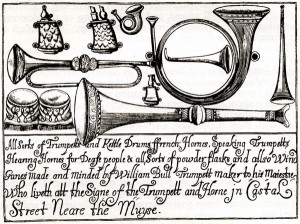 All Sorts of Trumpetts and Kettle Drums ffrench Hornes, Speaking Trumpetts
Hearing Hornes for Deafe people & all Sorts of powder flasks and also Wind
Gunes made and mended by William Bull Trumpett maker to his Majestie
Who liveth att the Signe of the Trumpett and Horne in Castal
Street Neare the Muyse.